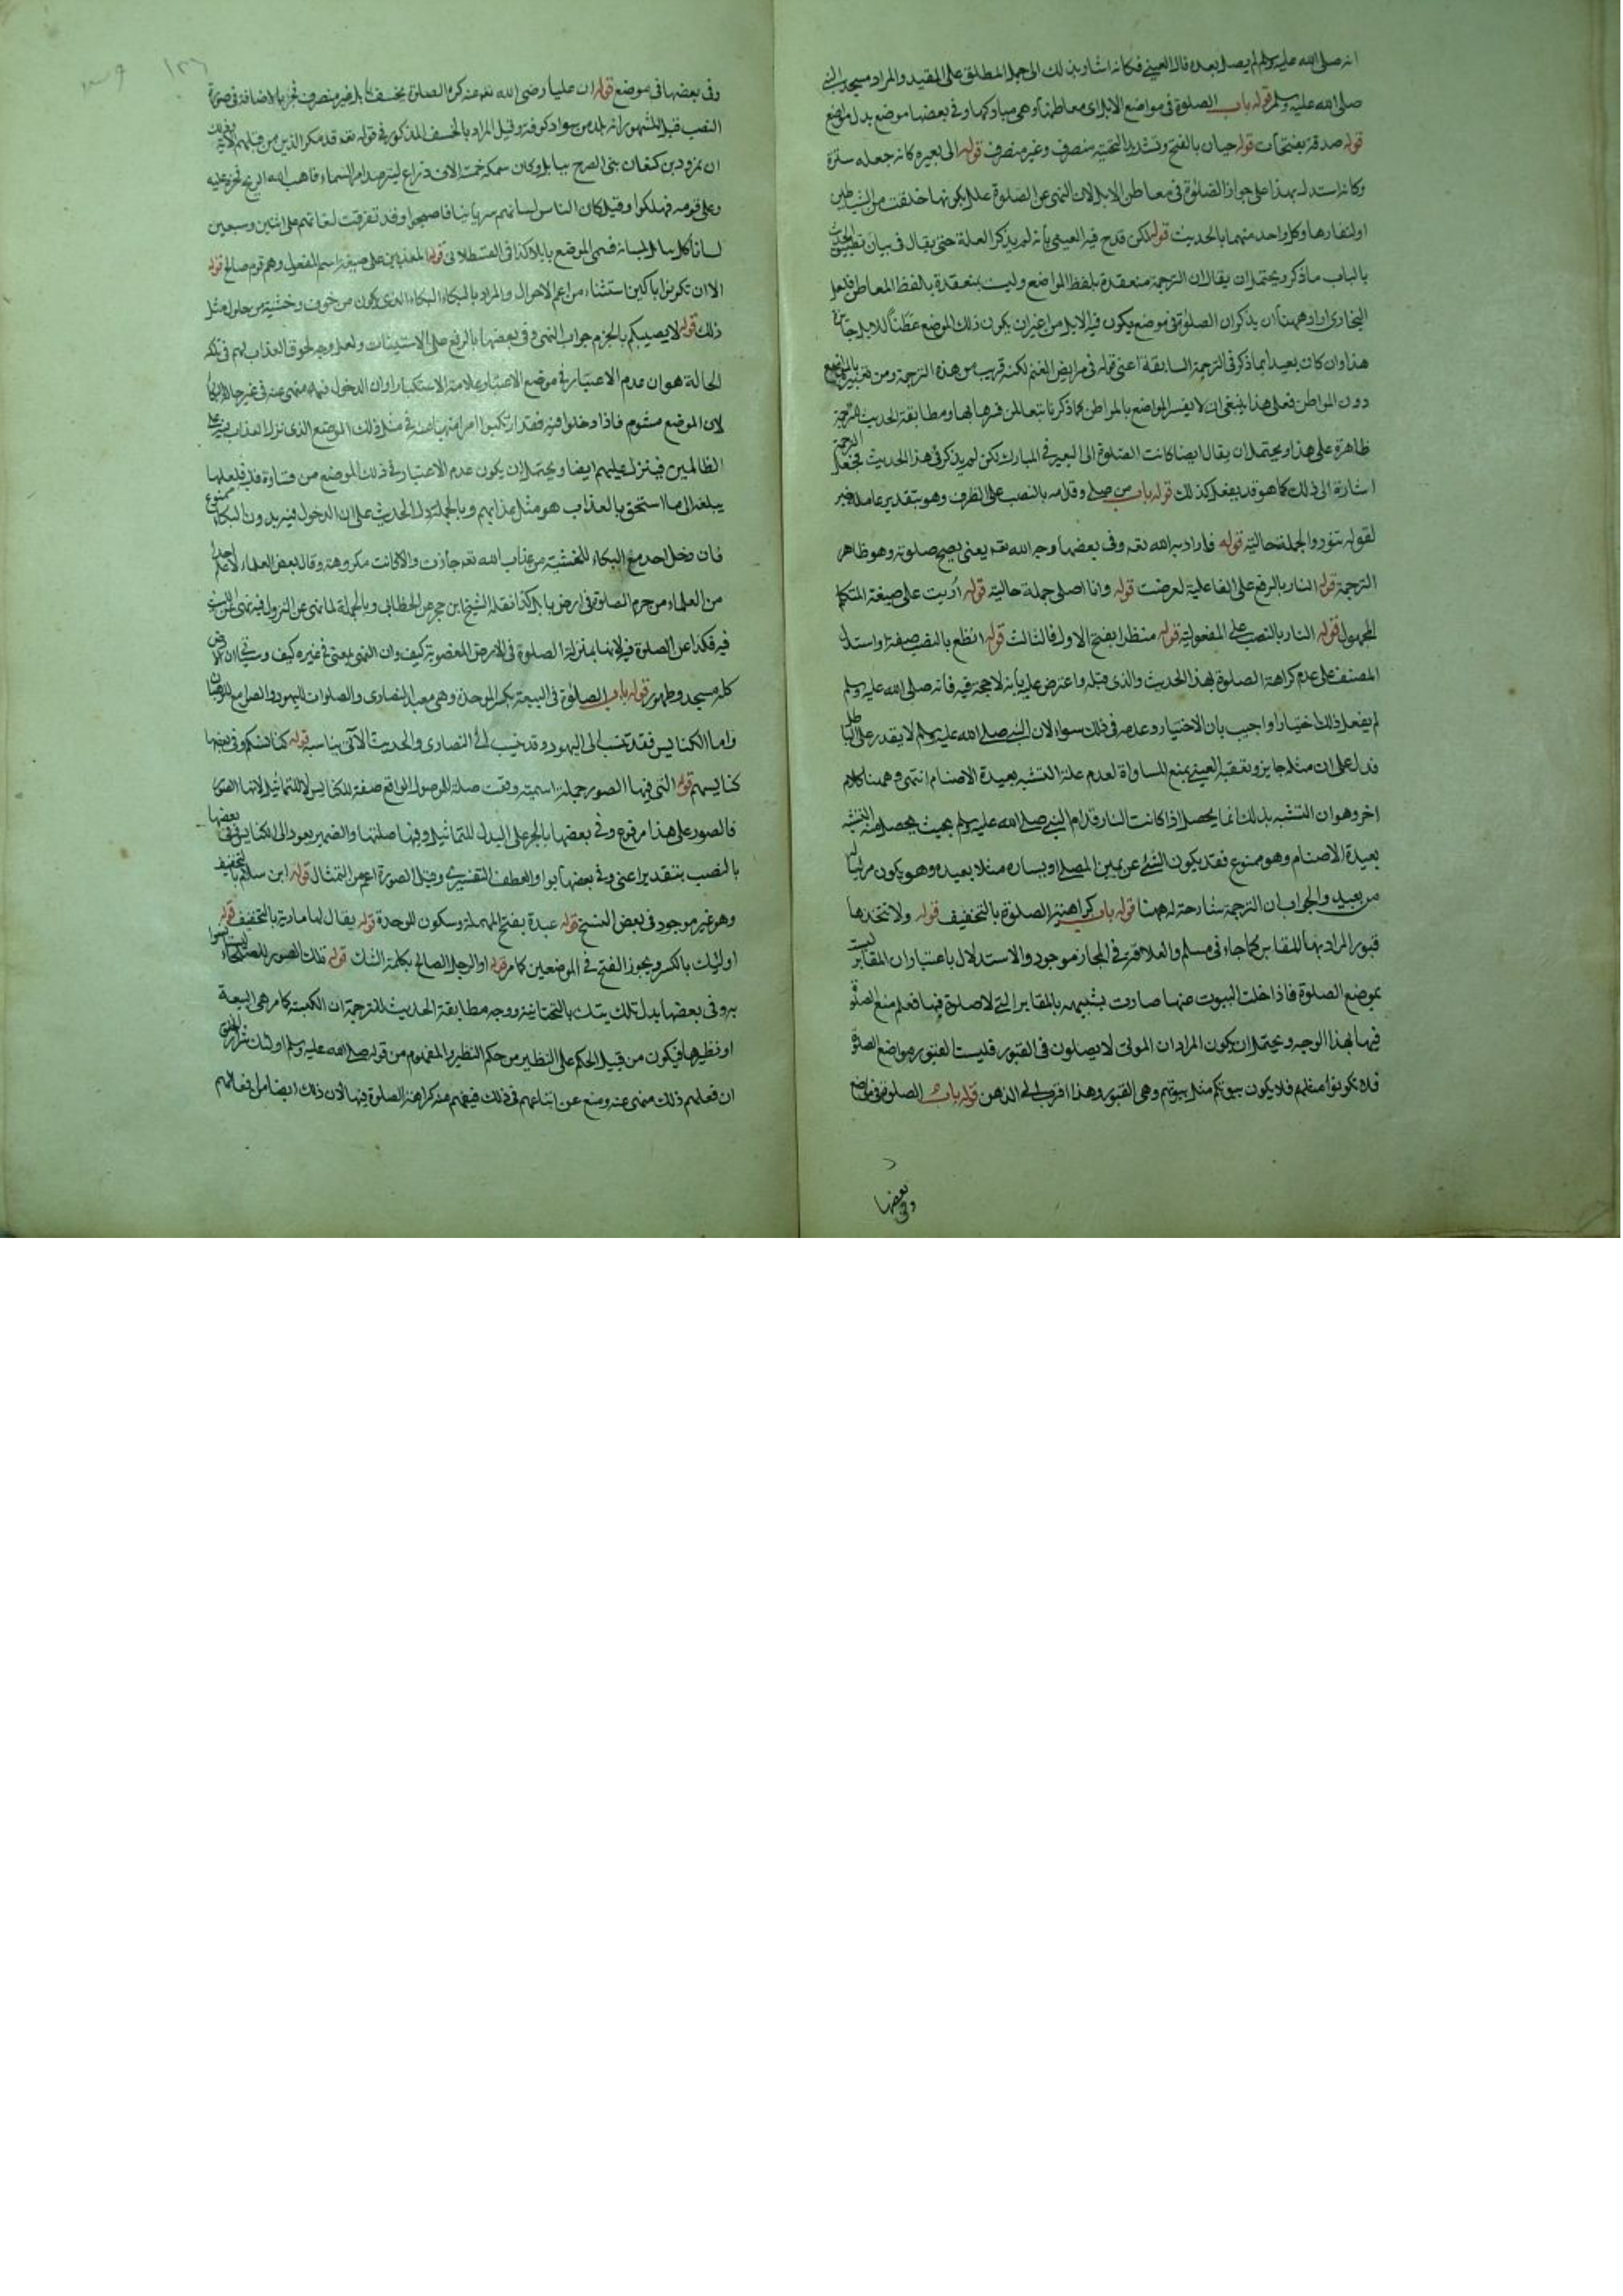 انه صلى الله عليه وسلم لم يصل بعده قال العيني فكانه اشار بذلك الى حمل المطلق على المقيد والمراد مسجد النبي
صلى الله عليه وسلم قوله باب الصلوة في مواضع الابل اى معاطنها وهي مباركها وفي بعضها موضع بدل مواضع
قوله صدقة بفتحات قوله حيان بالفتح وتشديد التحتية منصرف وغير منصرف قوله الى بعيره كانه جعله سترة
وكانه استدل بهذا على جواز الصلوة في معاطن الابل لان النهى عن الصلوة علل بكونها خلقت من الشياطين
او لنفارها وكل واحد منهما بالحديث قوله لكن قدح فيه العيني بانه لم يذكر العلة حتى يقال في بيان تطبيق الحديث
بالباب ما ذكر ويحتمل ان يقال ان الترجمة منعقدة بلفظ المواضع وليست بمنعقدة بالفظ المعاطن فلعل
البخارى اراد ههنا ان يذكر ان الصلوة في موضع يكون فيه الابل من غير ان يكون ذلك الموضع عَطَناً للابل جائزة
هذا وان كان بعيدا بما ذكر في الترجمة السابقة اعنى قوله في مرابض الغنم لكنه قريب من هذه الترجمة ومن تعبير بالمواضع
دون المواطن فعلى هذا ينبغى ان لا يفسر المواضع بالمواطن كما ذكرنا تبعا لمن فسرها بها ومطابقة الحديث للترجمة
ظاهرة على هذا ويحتمل ان يقال ايضا كانت الصلوة الى البعير في المبارك لكن لم يذكر في هذا الحديث فجعل الترجمة
اشارة الى ذلك كما هو قد يفعل كذلك قوله باب من صلى وقدامه بالنصب على الظرف وهو بتقدير عامله خبر
لقوله تنور والجملة حالية قوله فاراد به الله تعه وفي بعضها وجه الله تعه يعنى يصح صلوته وهو ظاهر
الترجمة قوله النار بالرفع على الفاعلية لعرضت قوله وانا اصلى جملة حالية قوله اُريت على صيغة المتكلم
المجهول قوله النار بالنصب على المفعولية قوله منظرا بفتح الاول والثالث قوله افظع بالنصب صفته واستدل
المصنف على عدم كراهة الصلوة بهذا الحديث والذى قبله واعترض عليه بانه لا حجة فيه فانه صلى الله عليه وسلم
لم يفعل ذلك اختيارا واجيب بان الاختيار وعدمه في ذلك سواء لان النبي صلى الله عليه وسلم لا يقدر على الباطل
فدل على ان مثله جايز وتعقبه العيني بمنع المساواة لعدم علة التشبه بعبدة الاصنام انتهى وههنا كلام
اخر وهو ان التشبه بذلك انما يحصل اذا كانت النار قدام النبي صلى الله عليه وسلم بحيث يحصل منه التشبه
بعبدة الاصنام وهو ممنوع فقد يكون الشئ عن يمين المصلى او يساره مثلا بعيده وهو يكون مرئيا له
من بعيد والجواب ان الترجمة شارحة له ههنا قوله باب كراهية الصلوة بالتخفيف قوله ولا تتخذها
قبورا المراد بها المقابر كما جاء في مسلم والعلاقة في المجاز موجود والاستدلال باعتبار ان المقابر ليست
بموضع الصلوة فاذا خلت البيوت عنها صارت شبيهه بالمقابر التي لا صلوة فيها فعلم منع الصلوة
فيها بهذا الوجه ويحتمل ان يكون المراد ان الموتى لا يصلون في القبور فليست القبور مواضع الصلوة
فلا تكونوا مثلهم فلا يكون بيوتكم مثل بيوتهم وهي القبور وهذا اقرب الى الذهن قوله باب الصلوة في مواضع
وفي بعضها
١٢٦
وفي بعضها في موضع قوله ان عليا رضى الله تعه عنه كره الصلوة بخسف بابل غير منصرف
النصب قيل المشهور انه بلد من سواد كوفة وقيل المراد بالخسف المذكور في قوله تعه قد مكر الذين من قبلهم الآية
ان نمرود بن كنعان بنى الصرح ببابل وكان سمكه خمسة الاف ذراع ليترصد امر السماء فاهب الله الريح فخر عليه
وعلى قومه فهلكوا وقيل كان الناس لسانهم سريانيا فاصبحوا وقد تفرقت لغاتهم على اثنين وسبعين
لسانا كل يبلبل لسانه فسمى الموضع بابلا كذا في القسطلاني قوله المعذبين على صيغة اسم المفعول وهم قوم صالح قوله
الا ان تكونوا باكين استثناء من اعم الاحوال والمراد بالبكاء البكاء الذى يكون من خوف وخشية من حلول مثل
ذلك قوله لا يصيبكم بالجزم جواب النهى وفي بعضها بالرفع على الاستيناف ولعل وجه لحوق العذاب بهم في تلك
الحالة هو ان عدم الاعتبار في موضع الاعتبار علامة الاستكبار او ان الدخول فيه منهى عنه في غير حال البكاء
لان الموضع مشوم فاذا دخلوا فيه فقد ارتكبوا امرا منهيا عنه في مثل ذلك الموضع الذى نزل العذاب فيه على
الظالمين فينزل عليهم ايضا ويحتمل ان يكون عدم الاعتبار في ذلك الموضع من قساوة قلب فلعلها
يبلغ الى ما استحق بالعذاب هو مثل عذابهم وبالجملة دل الحديث على ان الدخول فيه بدون البكاء ممنوع
فان دخل احد مع البكاء للخشية من عذاب الله تعه جازت والا كانت مكروهة وقال بعض العلماء لا اعلم احدا
من العلماء من حرم الصلوة في ارض بابل كذا نقله الشيخ ابن حجر عن الخطابى وبالجملة لما نهى عن النزول فيه
فيه فكذا عن الصلوة فيه لانها بمنزلة الصلوة في الارض المغصوبة كيف وان النهى لمعنى في غيره كيف وسيجئ ان الارض
كله مسجد وطهور قوله باب الصلوة في البيعة بكسر الموحدة وهي معبد النصارى والصلوات لليهود والصوامع للرهبان
واما الكنايس فقد تنسب الى اليهود وقد تنسب الى النصارى والحديث الآتى يناسبه قوله كنائسكم وفي بعضها
كنايسهم قوله التي فيها الصور جملة اسمية وقعت صلة للموصول الواقع صفة للكنايس لا للتماثيل لانها الصور
فالصور على هذا مرفوع وفي بعضها بالجر على البدل للتماثيل وفيها صلتها والضمير يعود الى الكنايس وفي بعضها
بالنصب بتقدير اعنى وفي بعضها بواو العطف التفسيرى وقيل الصورة اعم من التمثال قوله ابن سلام بالتخفيف
وهو غير موجود في بعض النسخ قوله عبدة بفتح المهملة وسكون الموحدة قوله يقال لها مارية بالتخفيف قوله
اولئك بالكسر ويجوز الفتح في الموضعين كما مر قوله او الرجل الصالح بكلمة الشك قوله تلك الصور
وفي بعضها بدل تلك تيك بالتحتانية ووجه مطابقة الحديث للترجمة ان الكنيسة كما مر هي البيعة
او نظيرها فيكون من قبيل الحكم على النظير من حكم النظير والمفهوم من قوله صلى الله عليه وسلم اولئك شرار الخلق
ان فعلهم ذلك منهى عنه ومنع عن اتباعهم في ذلك فيفهم منه كراهة الصلوة فيها لان ذلك ايضا من افعالهم